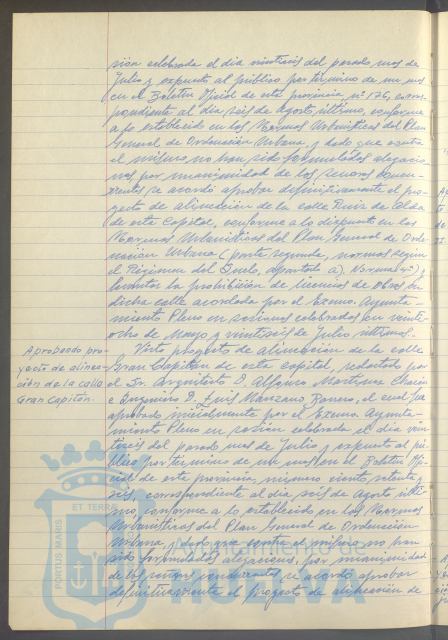 sión celebrada el día veintiseis del pasado mes de
Julio y expuesto al público por término de un mes
en el Boletín Oficial de esta provincia, nº 176, corres-
pondiente al día seis de Agosto último, conforme
a lo establecido en las Normas Urbanísticas del Plan
General de Ordenación Urbana, y dado que contra
el mismo no han sido formuladas alegacio-
nes por unanimidad de los señores concu-
rrentes se acordó aprobar definitivamente el pro-
yecto de alineación de la calle Ruiz de Alda
de esta Capital, conforme a lo dispuesto en las
Normas Urbanísticas del Plan General de Orde-
nación Urbana (parte segunda, normas según
el Régimen del Suelo, apartado a), Norma 4ª) y
levantar la prohibición de licencias de obras en
dicha calle acordada por el Excmo. Ayunta-
miento Pleno en sesiones celebradas en veinti-
ocho de Mayo y veintiseis de Julio últimos.
Aprobando pro-
yecto de alinea-
ción de la calle
Gran Capitán.
Visto proyecto de alineación de la calle
Gran Capitán de esta capital, redactado por
el Sr. Arquitecto D. Alfonso Martínez Chacón
e Ingeniero D. Luis Manzano Romero, el cual fue
aprobado inicialmente por el Excmo. Ayunta-
miento Pleno en sesión celebrada el día vein-
tiseis del pasado mes de Julio y expuesto al pú-
blico por término de un mes en el Boletín Ofi-
cial de esta provincia, número ciento setenta y
seis, correspondiente al día seis de Agosto últi-
mo, conforme a lo establecido en las Normas
Urbanísticas del Plan General de Ordenación
Urbana, y dado que contra el mismo no han
sido formuladas alegaciones, por unanimidad
de los señores concurrentes se acordó aprobar
definitivamente el proyecto de alineación de
PORTUS MARIS ET TERRAE
Ayuntamiento de
HUELVA